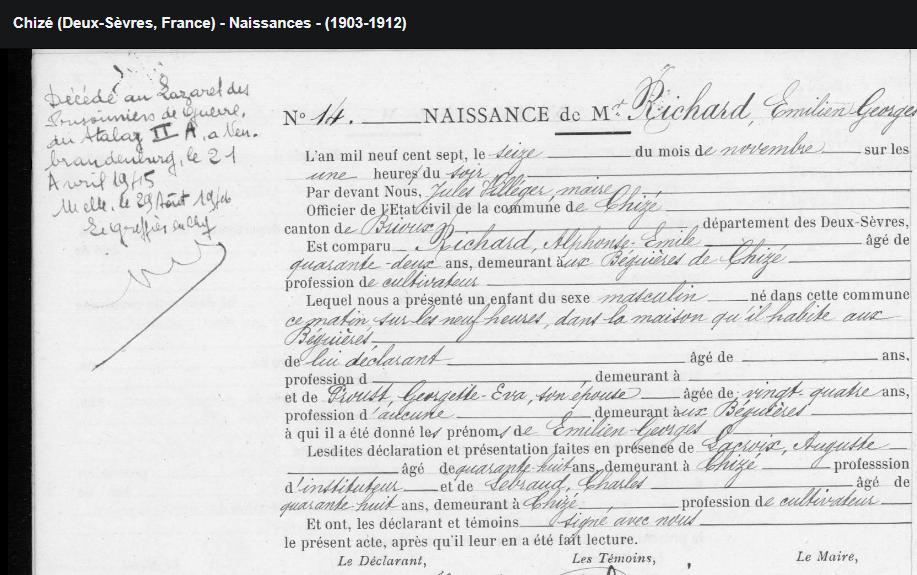 Chizé (Deux-Sèvres, France) - Naissances - (1903-1912)
Décédé au Lazaret des
Prisonniers de Guerre,
du Stalag II A, a Neu-
brandenburg, le 21
Avril 1945
Melle, le 29 Août 1946
Le Greffier en Chef
N° 14. NAISSANCE de Mr. Richard, Emilien Georges
L'an mil neuf cent sept, le seize du mois de novembre sur les
une heures du soir
Par devant Nous, Jules Villéger, maire
Officier de l'Etat civil de la commune de Chizé
canton de Brioux département des Deux-Sèvres,
Est comparu Richard, Alphonse-Emile âgé de
quarante-deux ans, demeurant aux Béguières de Chizé
profession de cultivateur
Lequel nous a présenté un enfant du sexe masculin né dans cette commune
ce matin sur les neuf heures, dans la maison qu'il habite aux
Béguières
de lui déclarant âgé de ans,
profession d , demeurant à
et de Proust, Georgette-Eva, son épouse âgée de vingt-quatre ans,
profession d'aucune demeurant aux Béguières
à qui il a été donné les prénoms de Emilien-Georges
Lesdites déclaration et présentation faites en présence de Lacroix, Auguste
âgé de quarante-huit ans, demeurant à Chizé professsion
d'instituteur et de Lebraud, Charles âgé de
quarante-huit ans, demeurant à Chizé profession de cultivateur
Et ont, les déclarant et témoins signé avec nous
le présent acte, après qu'il leur en a été fait lecture.
Le Déclarant, Les Témoins, Le Maire,